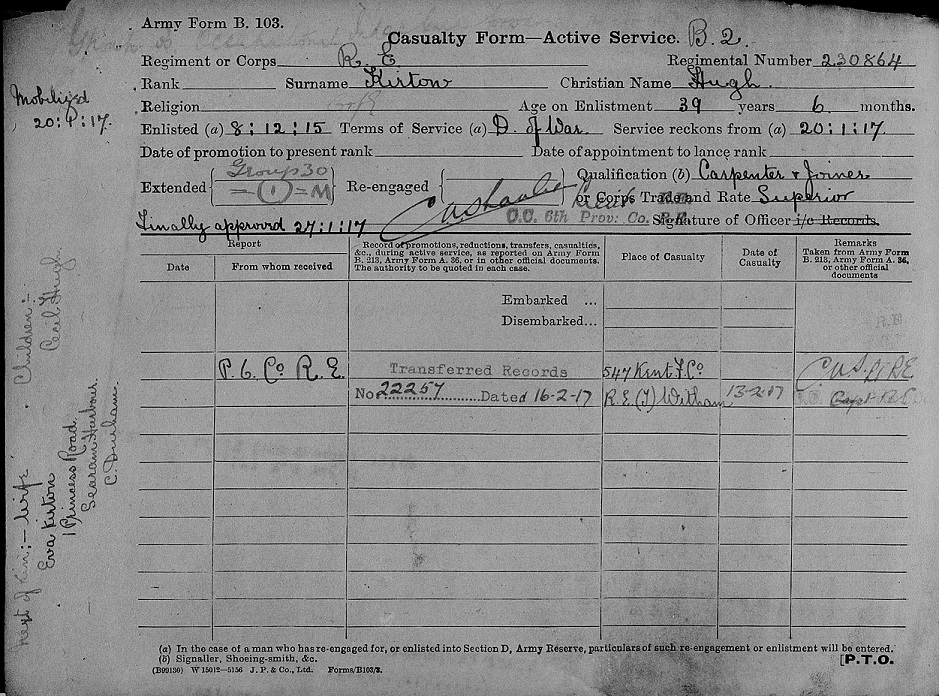 Army Form B. 103.
Casualty Form—Active Service. B.2.
Regiment or Corps R. E. Regimental Number 230864
Rank Surname Kirton Christian Name Hugh
Religion Age on Enlistment 39 years 6 months.
Mobilized
20:1:17.
Enlisted (a) 8:12:15 Terms of Service (a) D. of War. Service reckons from (a) 20:1:17.
Date of promotion to present rank Date of appointment to lance rank
Extended Group 30 Re-engaged Qualification (b) Carpenter & Joiner
= (1) = M or Corps Trade and Rate Superior
Finally approved 27:1:17 O.C. 6th Prov: Co. R.E. Signature of Officer i/c Records.
Report
Date From whom received
Record of promotions, reductions, transfers, casualties,
&c., during active service, as reported on Army Form
B. 213, Army Form A. 36, or in other official documents.
The authority to be quoted in each case.
Place of Casualty
Date of
Casualty
Remarks
Taken from Army Form
B. 213, Army Form A. 36,
or other official
documents
Embarked ...
Disembarked...
R.E.
P. 6. Co R. E. Transferred Records 547 Kent F. Co
No 22257 Dated 16-2-17 R.E.(T) Witham 13-2-17 Capt R.E.
Next of Kin:— Wife Children:—
Eva Kirton Cecil Hugh
1 Princess Road.
Seaham Harbour.
C. Durham.
(a) In the case of a man who has re-engaged for, or enlisted into Section D, Army Reserve, particulars of such re-engagement or enlistment will be entered.
(b) Signaller, Shoeing-smith, &c.
(B99130) W 15012—5156 J. P. & Co., Ltd. Forms/B103/3. [P.T.O.